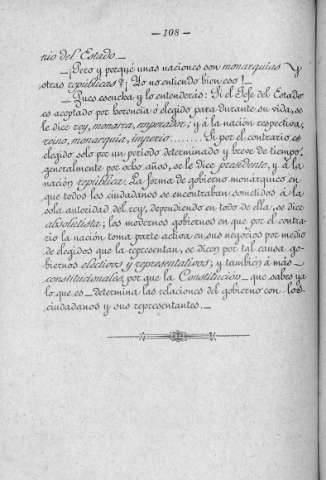 — 108 —
nio del Estado.—
—¡Pero y porqué unas naciones son monarquías y
otras repúblicas?¡ Yo no entiendo bien eso!—
—Pues escucha y lo entenderás: Si el Jefe del Estado
es aceptado por herencia ó elegido para durante su vida, se
le dice rey, monarca, emperador; y á la nación respectiva,
reino, monarquía, imperio....... Si por el contrario es
elegido solo por un periodo determinado y breve de tiempo,
generalmente por ocho años, se le dice presidente, y á la
nación república. La forma de gobierno monárquico en
que todos los ciudadanos se encontraban sometidos á la
sola autoridad del rey, dependiendo en todo de ella, se dice
absolutista; los modernos gobiernos en que por el contra-
rio la nación toma parte activa en sus negocios por medio
de elegidos que la representan, se dicen por tal causa go-
biernos electivos y representativos; y también á más
constitucionales, por que la Constitución—que sabes ya
lo que es—determina las relaciones del gobierno con los
ciudadanos y sus representantes.—